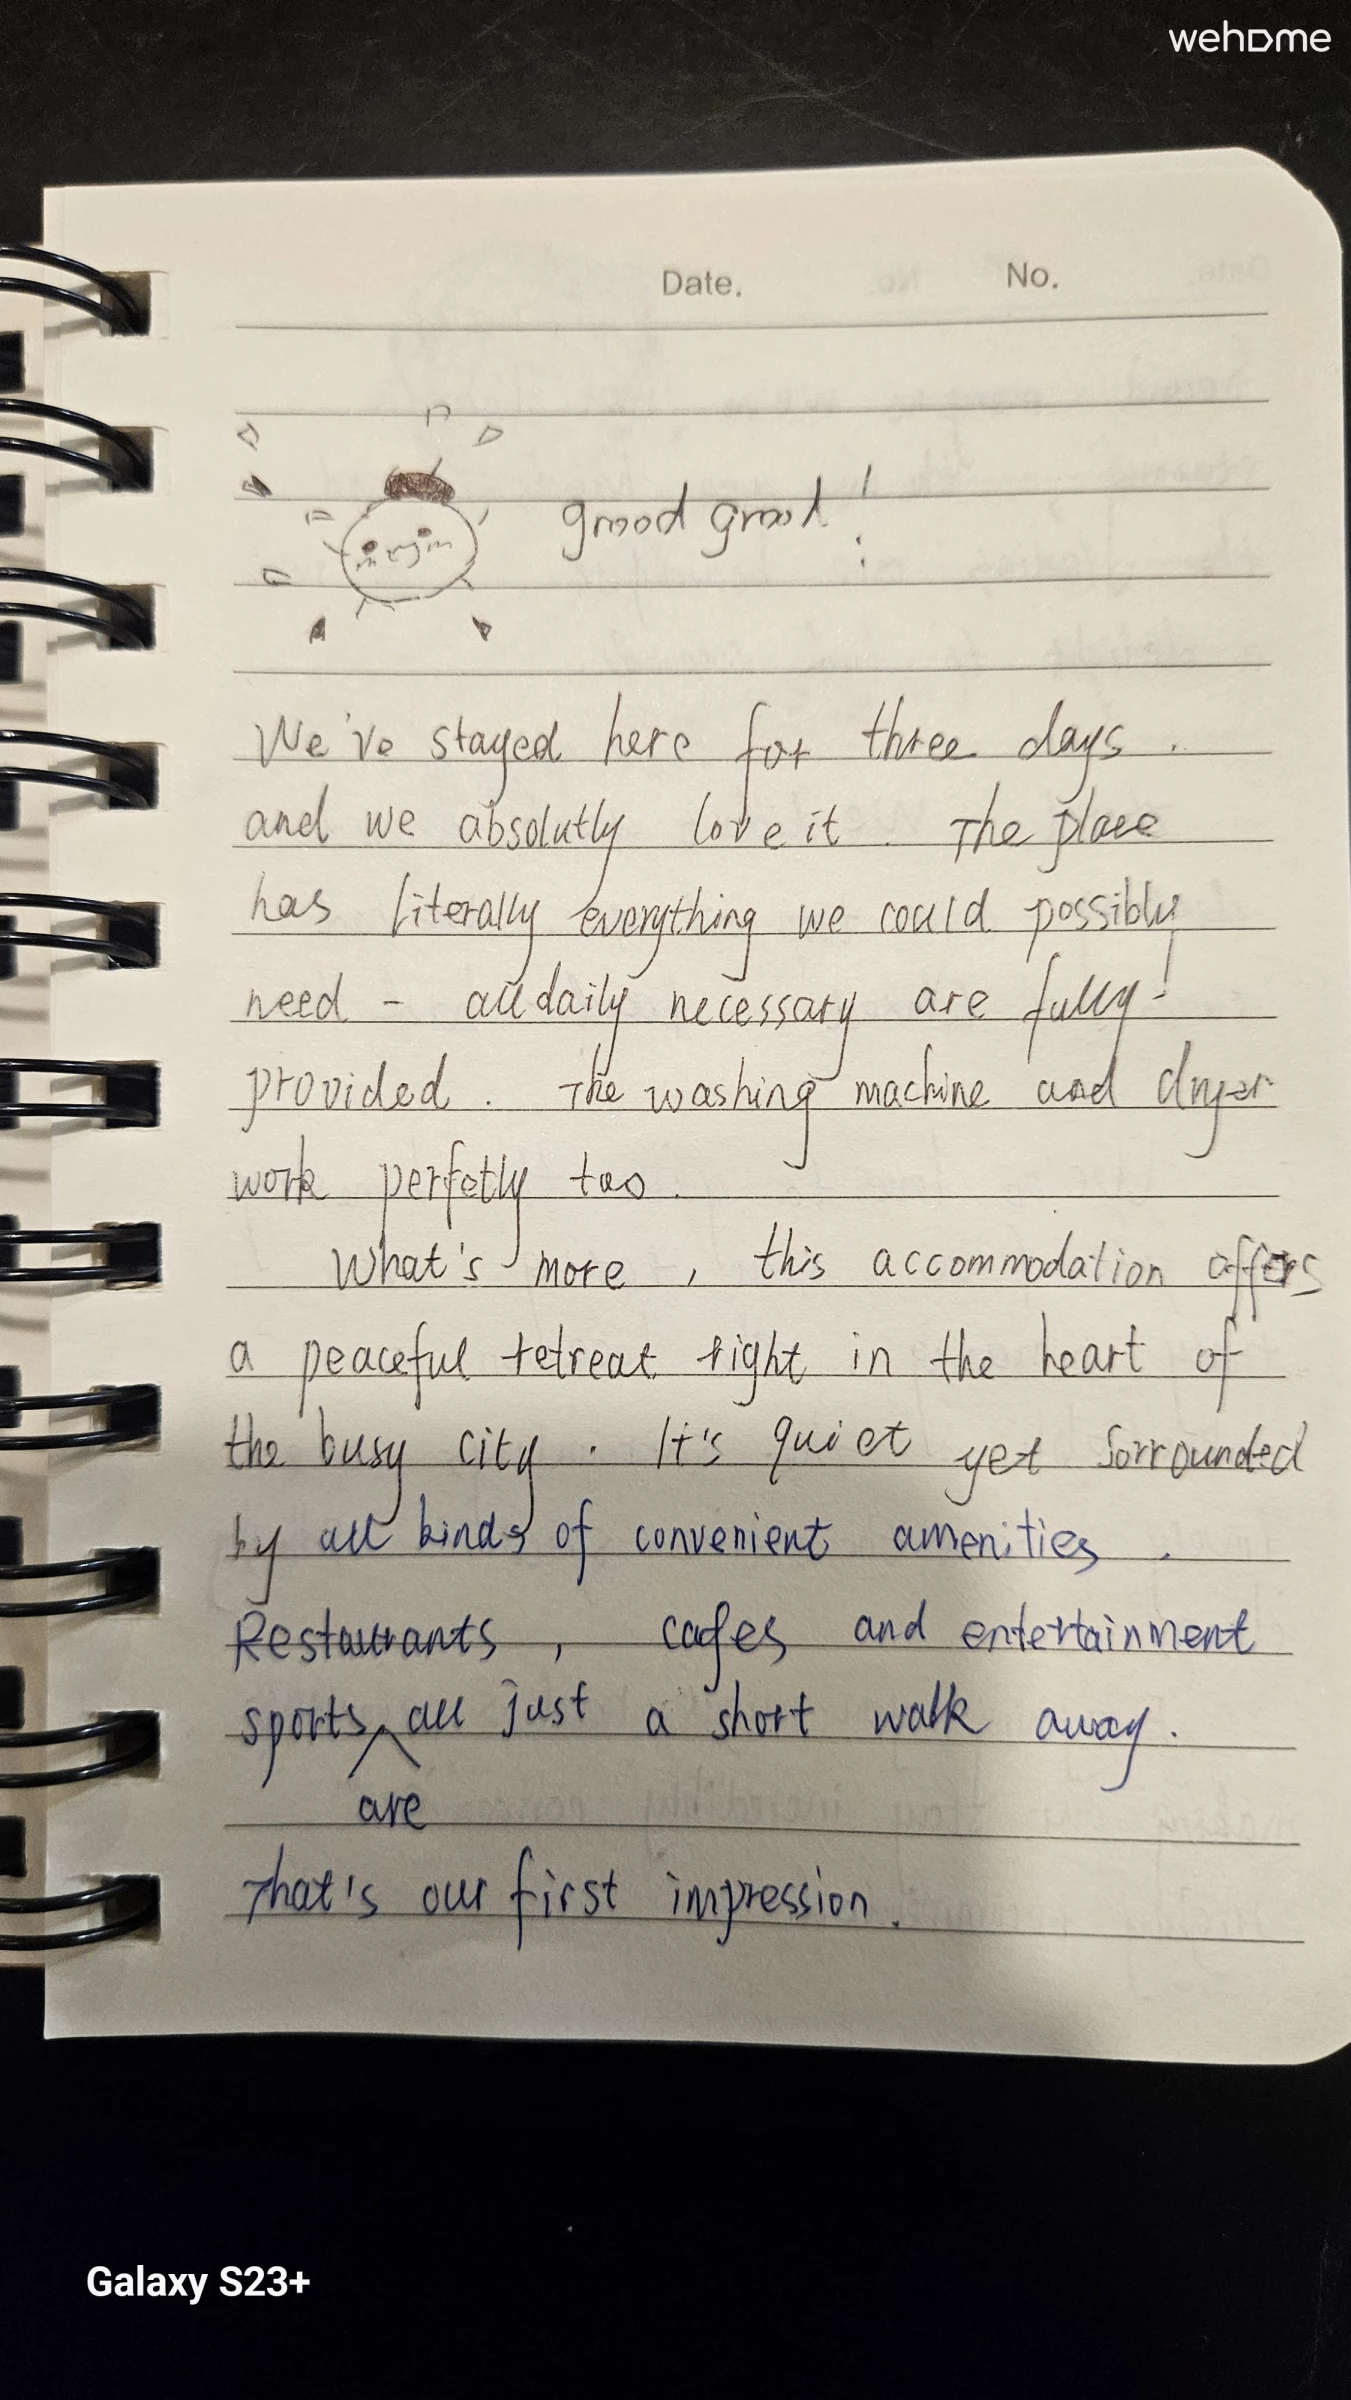 wehome
Date. No.
good good!
We've stayed here for three days.
and we absolutly love it. The place
has literally everything we could possibly
need - all daily necessary are fully!
provided. The washing machine and dryer
work perfetly too.
What's more, this accommodation offers
a peaceful retreat right in the heart of
the busy city. It's quiet yet sorrounded
by all kinds of convenient amenities.
Restaurants, cafes and entertainment
sports all just a short walk away.
are
That's our first impression.
Galaxy S23+